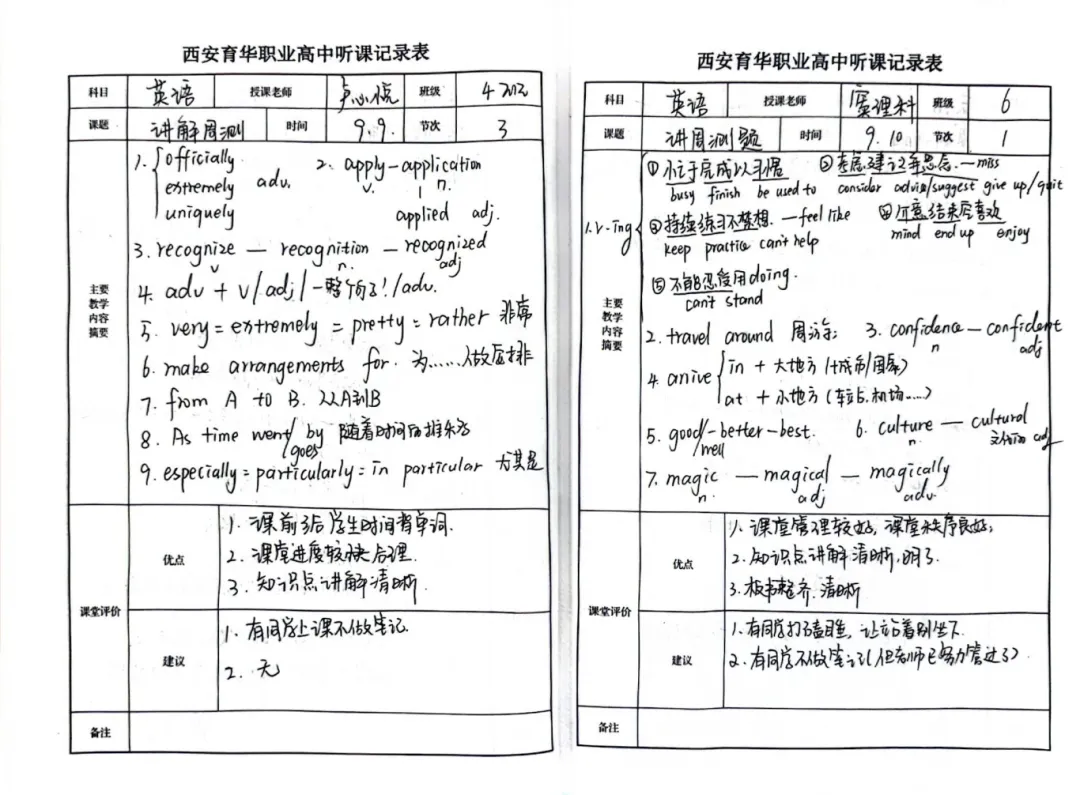 西安育华职业高中听课记录表
科目 英语 授课老师 卢心悦 班级 4
课题 讲解周测 时间 9.9. 节次 3
主要教学内容摘要
1. officially
extremely adv.
uniquely
2. apply—application
v. n.
applied adj.
3. recognize — recognition — recognized
v n. adj
4. adv + v/adj/一整句子!/adv.
5. very = extremely = pretty = rather 非常
6. make arrangements for. 为……做安排
7. from A to B. 从A到B
8. As time went/goes by 随着时间的推移
9. especially = particularly = in particular 尤其是
课堂评价
优点
1. 课前3后学生时间背单词.
2. 课堂进度较快合理.
3. 知识点讲解清晰.
建议
1. 有同学上课不做笔记.
2. 无
备注
西安育华职业高中听课记录表
科目 英语 授课老师 班级 6
课题 讲周测题 时间 9.10 节次 1
主要教学内容摘要
1. v-ing
① 忙于完成以习惯
busy finish be used to
② 考虑建议弃思念.—miss
consider advise/suggest give up/quit
③ 持续练习不禁想.—feel like
keep practice can't help
④ 介意结束尽喜欢
mind end up enjoy
⑤ 不能忍受用doing.
can't stand
2. travel around 周游
3. confidence — confident
n adj
4. arrive
in + 大地方 (城市/国家)
at + 小地方 (车站、机场……)
5. good/well-better-best.
6. culture — cultural
n. 文化的 adj
7. magic — magical — magically
n. adj adv.
课堂评价
优点
1. 课堂管理较好, 课堂秩序良好;
2. 知识点讲解清晰,明了
3. 板书整齐.清晰
建议
1. 有同学打瞌睡, 让站着别坐下.
2. 有同学不做笔记(但老师已努力管过了)
备注